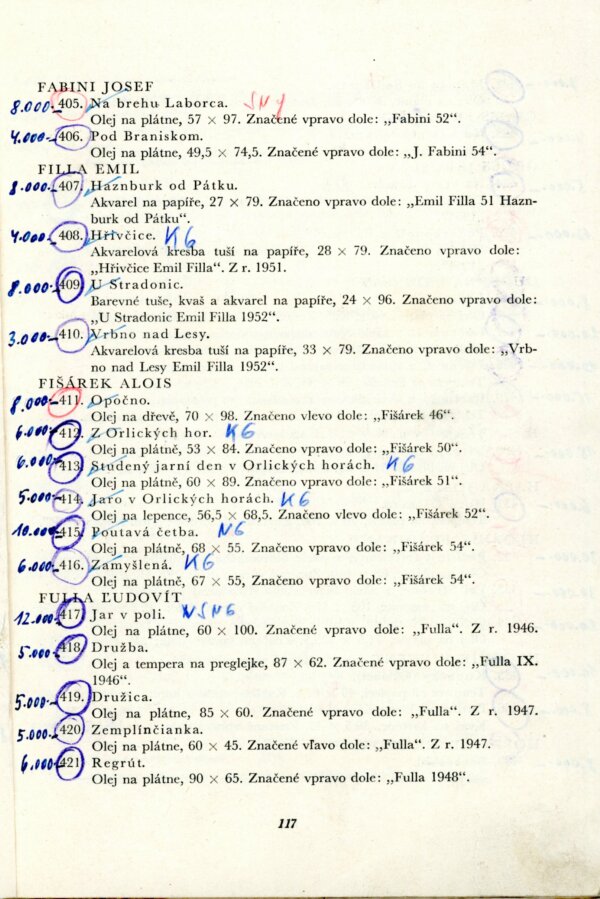 FABINI JOSEF
8.000.- 405. Na brehu Laborca.
Olej na plátne, 57 × 97. Značené vpravo dole: „Fabini 52“.
4.000.- 406. Pod Braniskom.
Olej na plátne, 49,5 × 74,5. Značené vpravo dole: „J. Fabini 54“.
FILLA EMIL
8.000.- 407. Haznburk od Pátku.
Akvarel na papíře, 27 × 79. Značeno vpravo dole: „Emil Filla 51 Hazn-
burk od Pátku“.
4.000.- 408. Hřivčice. KG
Akvarelová kresba tuší na papíře, 28 × 79. Značeno vpravo dole:
„Hřivčice Emil Filla“. Z r. 1951.
8.000.- 409. U Stradonic.
Barevné tuše, kvaš a akvarel na papíře, 24 × 96. Značeno vpravo dole:
„U Stradonic Emil Filla 1952“.
3.000.- 410. Vrbno nad Lesy.
Akvarelová kresba tuší na papíře, 33 × 79. Značeno vpravo dole: „Vrb-
no nad Lesy Emil Filla 1952“.
FIŠÁREK ALOIS
8.000.- 411. Opočno.
Olej na dřevě, 70 × 98. Značeno vlevo dole: „Fišárek 46“.
6.000.- 412. Z Orlických hor. KG
Olej na plátně, 53 × 84. Značeno vpravo dole: „Fišárek 50“.
6.000.- 413. Studený jarní den v Orlických horách. KG
Olej na plátně, 60 × 89. Značeno vpravo dole: „Fišárek 51“.
5.000.- 414. Jaro v Orlických horách. KG
Olej na lepence, 56,5 × 68,5. Značeno vlevo dole: „Fišárek 52“.
10.000.- 415. Poutavá četba. NG
Olej na plátně, 68 × 55. Značeno vpravo dole: „Fišárek 54“.
6.000.- 416. Zamyšlená. KG
Olej na plátně, 67 × 55, Značeno vpravo dole: „Fišárek 54“.
FULLA ĽUDOVÍT
12.000.- 417. Jar v poli. NSNG
Olej na plátne, 60 × 100. Značené vpravo dole: „Fulla“. Z r. 1946.
5.000.- 418. Družba.
Olej a tempera na preglejke, 87 × 62. Značené vpravo dole: „Fulla IX.
1946“.
5.000.- 419. Družica.
Olej na plátne, 85 × 60. Značené vpravo dole: „Fulla“. Z r. 1947.
5.000.- 420. Zemplínčianka.
Olej na plátne, 60 × 45. Značené vľavo dole: „Fulla“. Z r. 1947.
6.000.- 421. Regrút.
Olej na plátne, 90 × 65. Značené vpravo dole: „Fulla 1948“.
117